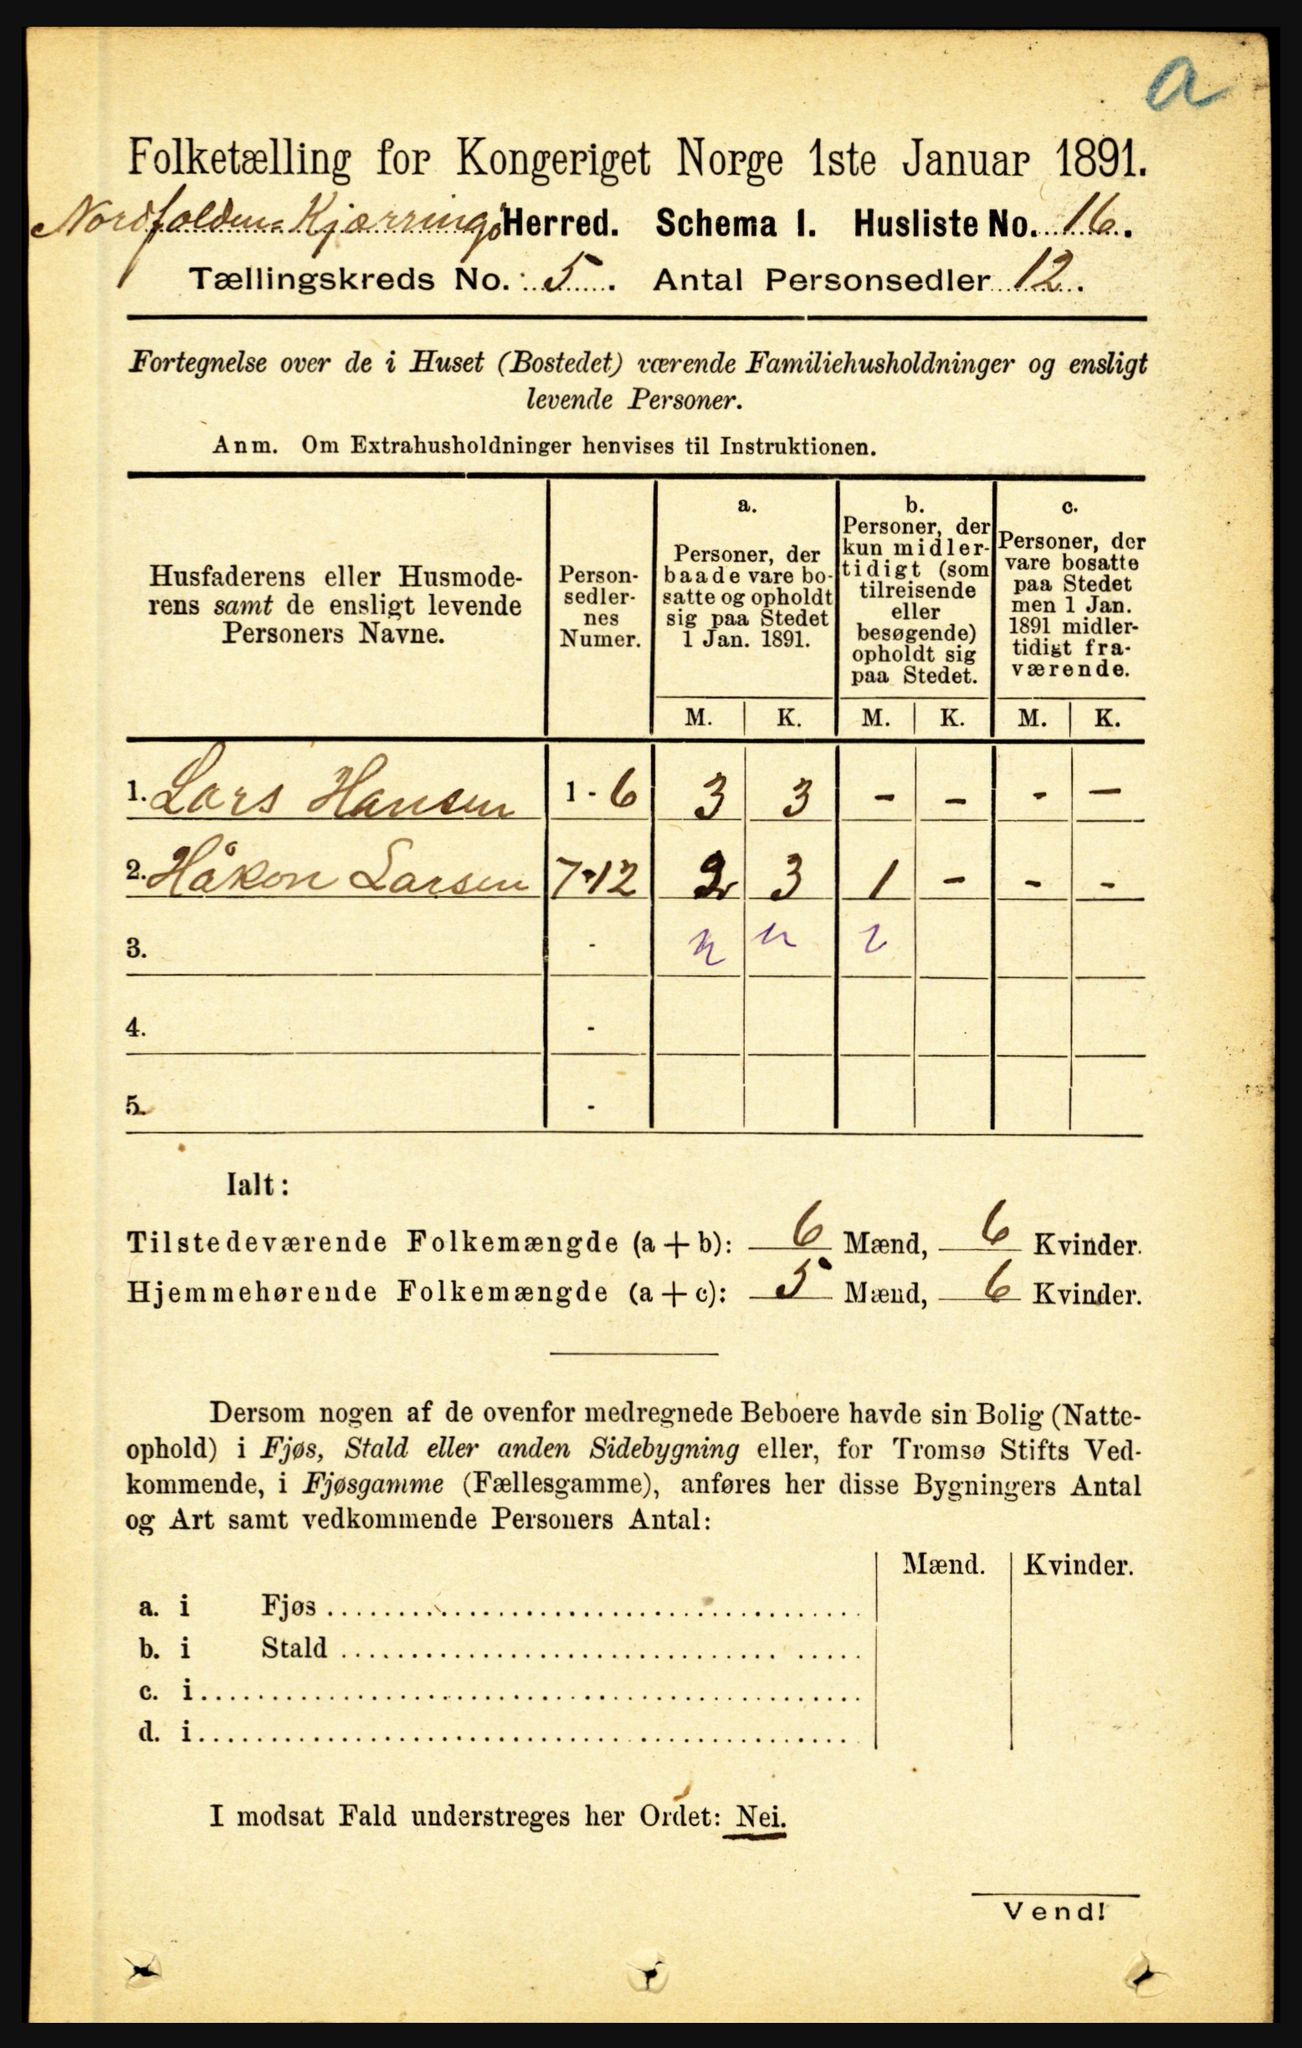 a
Folketælling for Kongeriget Norge 1ste Januar 1891.
Nordfolden-Kjærringø Herred. Schema I. Husliste No. 16.
Tællingskreds No. 5. Antal Personsedler 12.
Fortegnelse over de i Huset (Bostedet) værende Familiehusholdninger og ensligt
levende Personer.
Anm. Om Extrahusholdninger henvises til Instruktionen.
Husfaderens eller Husmode-
rens samt de ensligt levende
Personers Navne.
Person-
sedler-
nes
Numer.
a.
Personer, der
baade vare bo-
satte og opholdt
sig paa Stedet
1 Jan. 1891.
b.
Personer, der
kun midler-
tidigt (som
tilreisende
eller
besøgende)
opholdt sig
paa Stedet.
c.
Personer, der
vare bosatte
paa Stedet
men 1 Jan.
1891 midler-
tidigt fra-
værende.
M. K. M. K. M. K.
1. Lars Hansen 1 - 6 3 3 - - - -
2. Håkon Larsen 7-12 2 3 1 - - -
3. -
4. -
5. -
Ialt:
Tilstedeværende Folkemængde (a + b): 6 Mænd, 6 Kvinder.
Hjemmehørende Folkemængde (a + c): 5 Mænd, 6 Kvinder.
Dersom nogen af de ovenfor medregnede Beboere havde sin Bolig (Natte-
ophold) i Fjøs, Stald eller anden Sidebygning eller, for Tromsø Stifts Ved-
kommende, i Fjøsgamme (Fællesgamme), anføres her disse Bygningers Antal
og Art samt vedkommende Personers Antal:
Mænd. Kvinder.
a. i Fjøs
b. i Stald
c. i
d. i
I modsat Fald understreges her Ordet: Nei.
Vend!